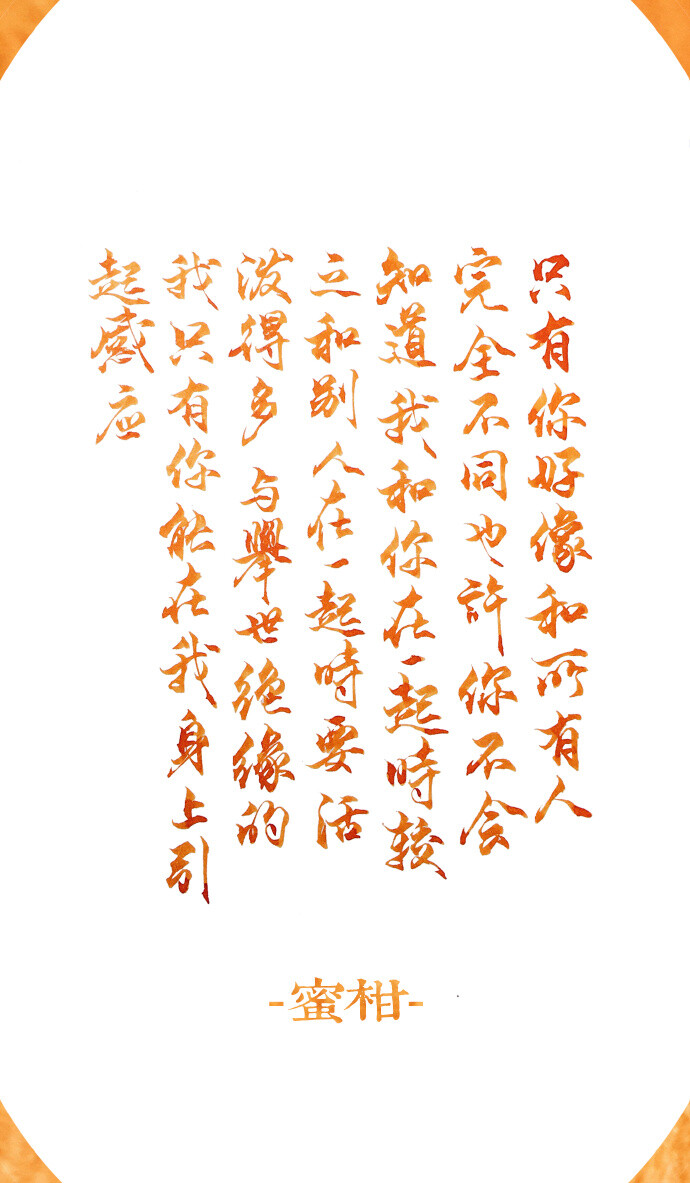 只有你好像和所有人
完全不同也許你不会
知道我和你在一起時較
之和别人在一起時要活
泼得多与舉世绝缘的
我只有你能在我身上引
起感应
-蜜柑-